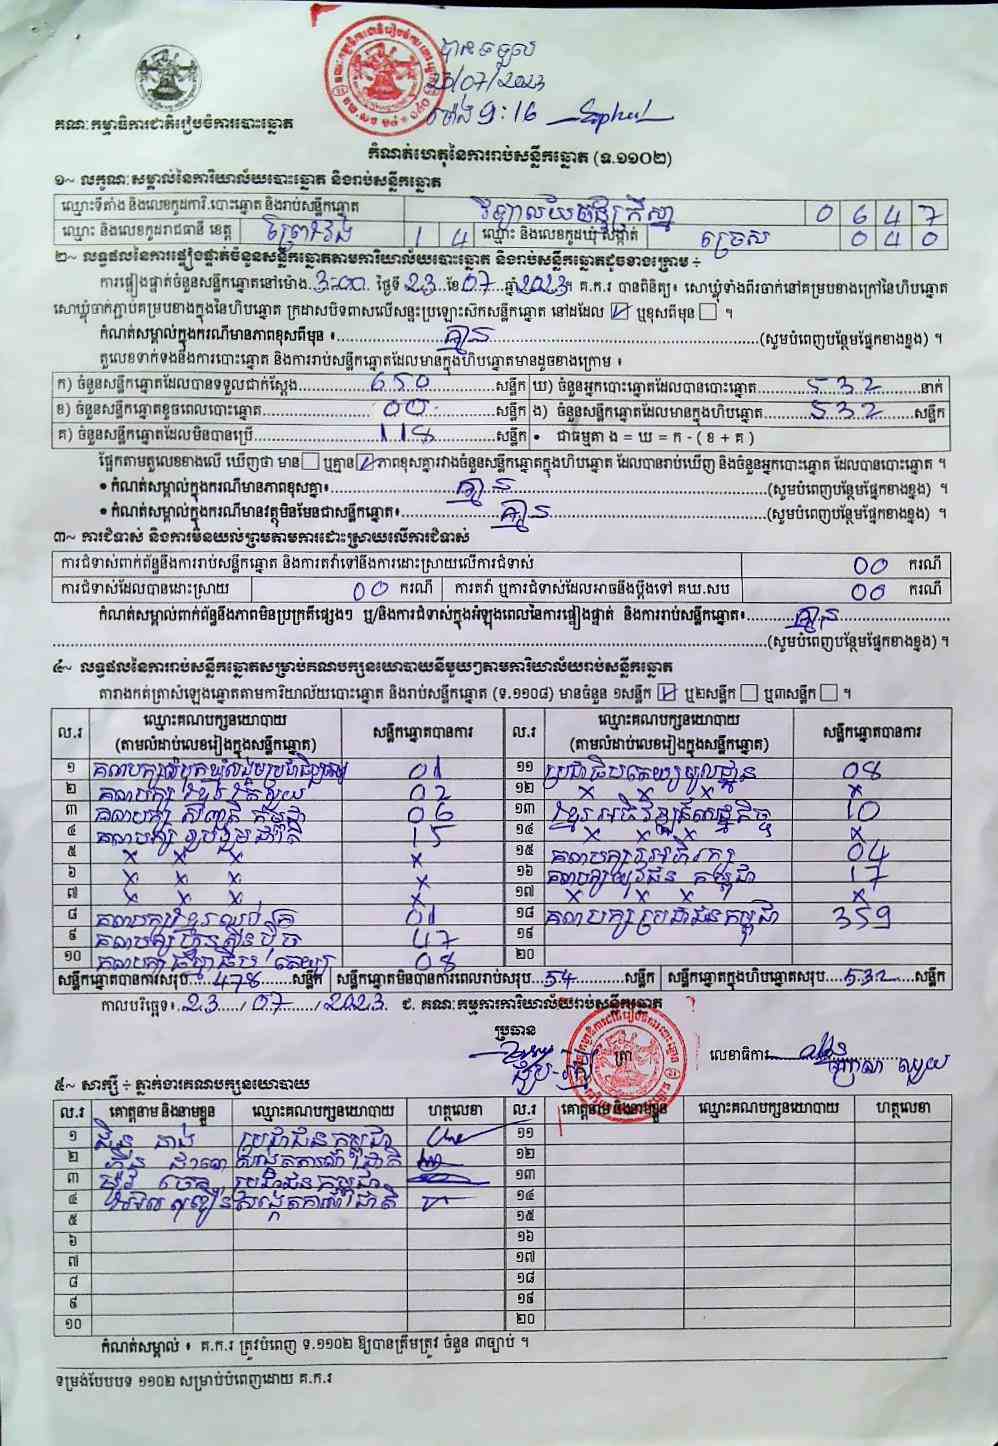 បានទទួល
23/07/2023
ម៉ោង 9:16
គណៈកម្មាធិការជាតិរៀបចំការបោះឆ្នោត
កំណត់ហេតុនៃការរាប់សន្លឹកឆ្នោត (ទ.១១០២)
១~ លក្ខណៈសម្គាល់នៃការិយាល័យបោះឆ្នោត និងរាប់សន្លឹកឆ្នោត
ឈ្មោះទីតាំង និងលេខកូដការិ.បោះឆ្នោត និងរាប់សន្លឹកឆ្នោត វិទ្យាល័យ 0 6 4 7
ឈ្មោះ និងលេខកូដរាជធានី ខេត្ត ព្រៃវែង 1 4 ឈ្មោះ និងលេខកូដឃុំ សង្កាត់ ច្រេស 0 4 0
២~ លទ្ធផលនៃការផ្ទៀងផ្ទាត់ចំនួនសន្លឹកឆ្នោតតាមការិយាល័យបោះឆ្នោត និងរាប់សន្លឹកឆ្នោតដូចខាងក្រោម ÷
ការផ្ទៀងផ្ទាត់ចំនួនសន្លឹកឆ្នោតនៅម៉ោង 3:00 ថ្ងៃទី 23 ខែ 07 ឆ្នាំ 2023 ។ គ.ក.រ បានពិនិត្យ៖ សោឃ្លុំទាំងពីរចាក់នៅគម្របខាងក្រៅនៃហិបឆ្នោត
សោឃ្លុំចាក់ភ្ជាប់គម្របខាងក្នុងនៃហិបឆ្នោត ក្រដាសបិទពាសលើសន្ទះប្រឡោះសិកសន្លឹកឆ្នោត នៅដដែល ☑ ឬខុសពីមុន ☐ ។
កំណត់សម្គាល់ក្នុងករណីមានភាពខុសពីមុន ៖ គ្មាន (សូមបំពេញបន្ថែមផ្នែកខាងខ្នង) ។
តួលេខទាក់ទងនឹងការបោះឆ្នោត និងការរាប់សន្លឹកឆ្នោតដែលមានក្នុងហិបឆ្នោតមានដូចខាងក្រោម ៖
ក) ចំនួនសន្លឹកឆ្នោតដែលបានទទួលជាក់ស្ដែង 650 សន្លឹក ឃ) ចំនួនអ្នកបោះឆ្នោតដែលបានបោះឆ្នោត 532 នាក់
ខ) ចំនួនសន្លឹកឆ្នោតខូចពេលបោះឆ្នោត 00 សន្លឹក ង) ចំនួនសន្លឹកឆ្នោតដែលមានក្នុងហិបឆ្នោត 532 សន្លឹក
គ) ចំនួនសន្លឹកឆ្នោតដែលមិនបានប្រើ 118 សន្លឹក • ជាធម្មតា ង = ឃ = ក - ( ខ + គ )
ផ្អែកតាមតួលេខខាងលើ ឃើញថា មាន ☐ ឬគ្មាន ☑ ភាពខុសគ្នារវាងចំនួនសន្លឹកឆ្នោតក្នុងហិបឆ្នោត ដែលបានរាប់ឃើញ និងចំនួនអ្នកបោះឆ្នោត ដែលបានបោះឆ្នោត ។
• កំណត់សម្គាល់ក្នុងករណីមានភាពខុសគ្នា៖ គ្មាន (សូមបំពេញបន្ថែមផ្នែកខាងខ្នង) ។
• កំណត់សម្គាល់ក្នុងករណីមានវត្ថុមិនមែនជាសន្លឹកឆ្នោត៖ គ្មាន (សូមបំពេញបន្ថែមផ្នែកខាងខ្នង) ។
៣~ ការជំទាស់ និងការមិនយល់ព្រមតាមការដោះស្រាយលើការជំទាស់
ការជំទាស់ពាក់ព័ន្ធនឹងការរាប់សន្លឹកឆ្នោត និងការតវ៉ាទៅនឹងការដោះស្រាយលើការជំទាស់ 00 ករណី
ការជំទាស់ដែលបានដោះស្រាយ 00 ករណី ការតវ៉ា ឬការជំទាស់ដែលអាចនឹងប្ដឹងទៅ គឃ.សប 00 ករណី
កំណត់សម្គាល់ពាក់ព័ន្ធនឹងភាពមិនប្រក្រតីផ្សេងៗ ឬ/និងការជំទាស់ក្នុងអំឡុងពេលនៃការផ្ទៀងផ្ទាត់ និងការរាប់សន្លឹកឆ្នោត៖ គ្មាន
(សូមបំពេញបន្ថែមផ្នែកខាងខ្នង) ។
៤~ លទ្ធផលនៃការរាប់សន្លឹកឆ្នោតសម្រាប់គណបក្សនយោបាយនីមួយៗតាមការិយាល័យរាប់សន្លឹកឆ្នោត
តារាងកត់ត្រាសំឡេងឆ្នោតតាមការិយាល័យបោះឆ្នោត និងរាប់សន្លឹកឆ្នោត (ទ.១១០៨) មានចំនួន ១សន្លឹក ☑ ឬ២សន្លឹក ☐ ឬ៣សន្លឹក ☐ ។
ល.រ ឈ្មោះគណបក្សនយោបាយ (តាមលំដាប់លេខរៀងក្នុងសន្លឹកឆ្នោត) សន្លឹកឆ្នោតបានការ ល.រ ឈ្មោះគណបក្សនយោបាយ (តាមលំដាប់លេខរៀងក្នុងសន្លឹកឆ្នោត) សន្លឹកឆ្នោតបានការ
១ គណបក្ស 01 ១១ ប្រជាធិបតេយ្យមូលដ្ឋាន 08
២ គណបក្ស ខ្មែរ 02 ១២ x x x x
៣ គណបក្ស 06 ១៣ ខ្មែរអភិវឌ្ឍន៍សេដ្ឋកិច្ច 10
៤ គណបក្ស ជាតិ 15 ១៤ x x x x
៥ x x x x ១៥ គណបក្ស 04
៦ x x x x ១៦ គណបក្សយុវជន កម្ពុជា 17
៧ x x x x ១៧ x x x x
៨ គណបក្ស ខ្មែរ 01 ១៨ គណបក្សប្រជាជនកម្ពុជា 359
៩ គណបក្សហ៊្វុនស៊ិនប៉ិច 47 ១៩
១០ គណបក្ស 08 ២០
សន្លឹកឆ្នោតបានការសរុប 478 សន្លឹក សន្លឹកឆ្នោតមិនបានការពេលរាប់សរុប 54 សន្លឹក សន្លឹកឆ្នោតក្នុងហិបឆ្នោតសរុប 532 សន្លឹក
កាលបរិច្ឆេទ៖ 23/07/2023 ជ. គណៈកម្មការការិយាល័យរាប់សន្លឹកឆ្នោត
ប្រធាន
ត្រា លេខាធិការ
៥~ សាក្សី ÷ ភ្នាក់ងារគណបក្សនយោបាយ
ល.រ គោត្តនាម និងនាមខ្លួន ឈ្មោះគណបក្សនយោបាយ ហត្ថលេខា ល.រ គោត្តនាម និងនាមខ្លួន ឈ្មោះគណបក្សនយោបាយ ហត្ថលេខា
១ ប្រជាជនកម្ពុជា ១១
២ ជាតិ ១២
៣ ប្រជាជនកម្ពុជា ១៣
៤ សង្កេតការណ៍ជាតិ ១៤
៥ ១៥
៦ ១៦
៧ ១៧
៨ ១៨
៩ ១៩
១០ ២០
កំណត់សម្គាល់ ៖ គ.ក.រ ត្រូវបំពេញ ទ.១១០២ ឱ្យបានត្រឹមត្រូវ ចំនួន ៣ច្បាប់ ។
ទម្រង់បែបបទ ១១០២ សម្រាប់បំពេញដោយ គ.ក.រ